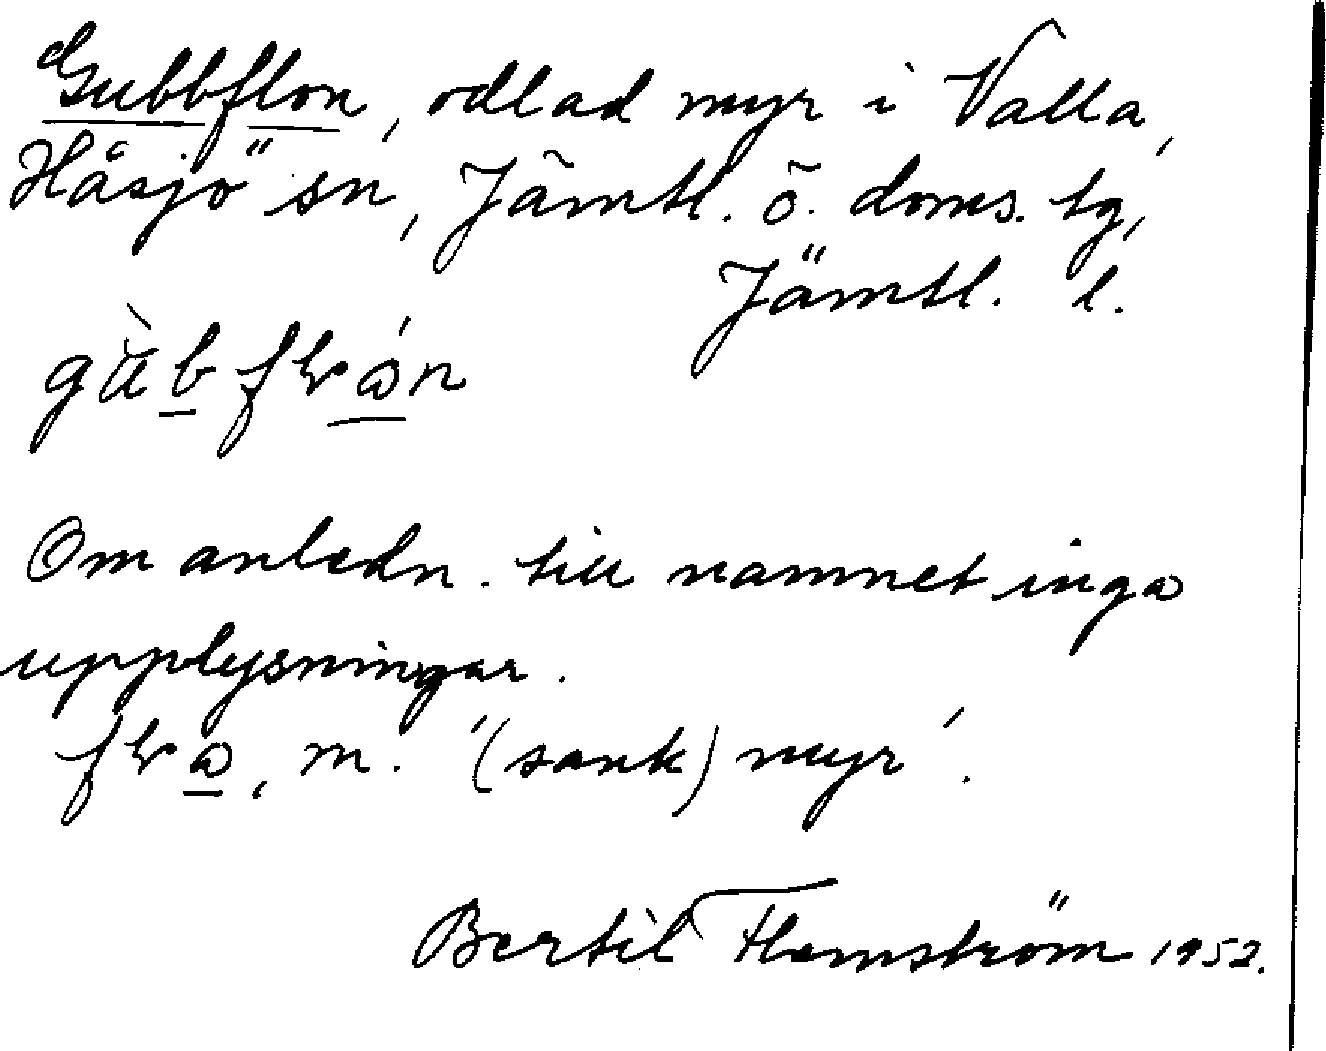 Gubbflon, odlad myr i Valla,
Håsjö sn, Jämtl. ö. doms. tg,
Jämtl. l.
Om anledn. till namnet inga
upplysningar.
m. '(sank) myr'.
Bertil Flemström 1952.